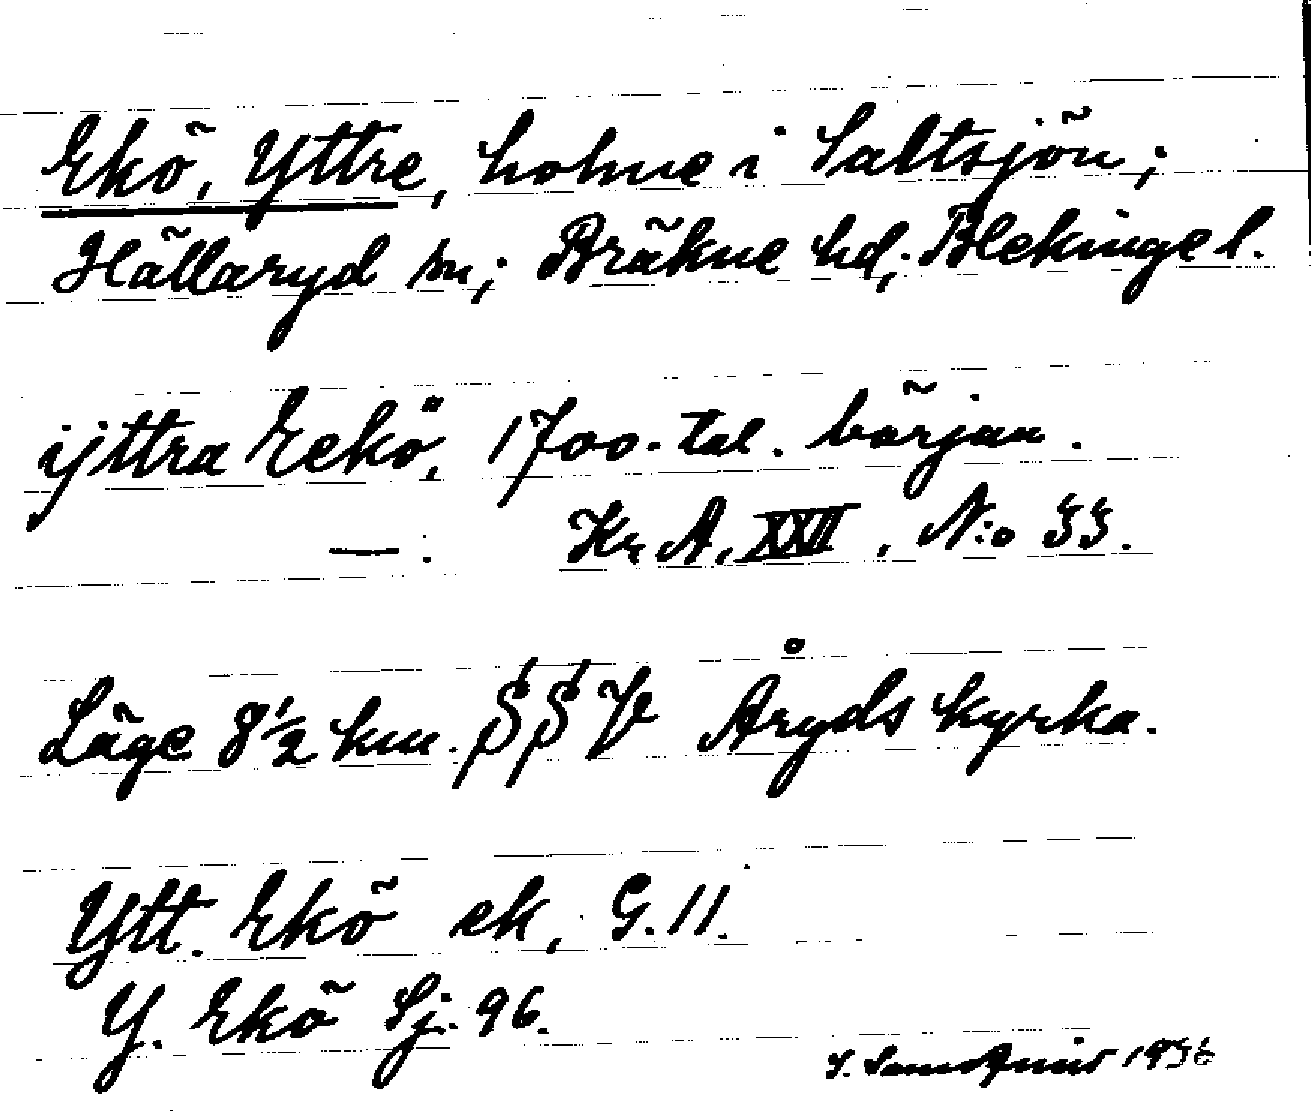 Ekö, Yttre, holme i Saltsjön;
Hällaryd sn; Bräkne hd; Blekinge l.
ijttra Eekö, 1700-tal. början.
— : Kr A, XXII, N:o 33.
Läge 8 1/2 km. S S V Åryds kyrka.
Ytt. Ekö ek, G. 11.
Y. Ekö Sj. 96.
1936